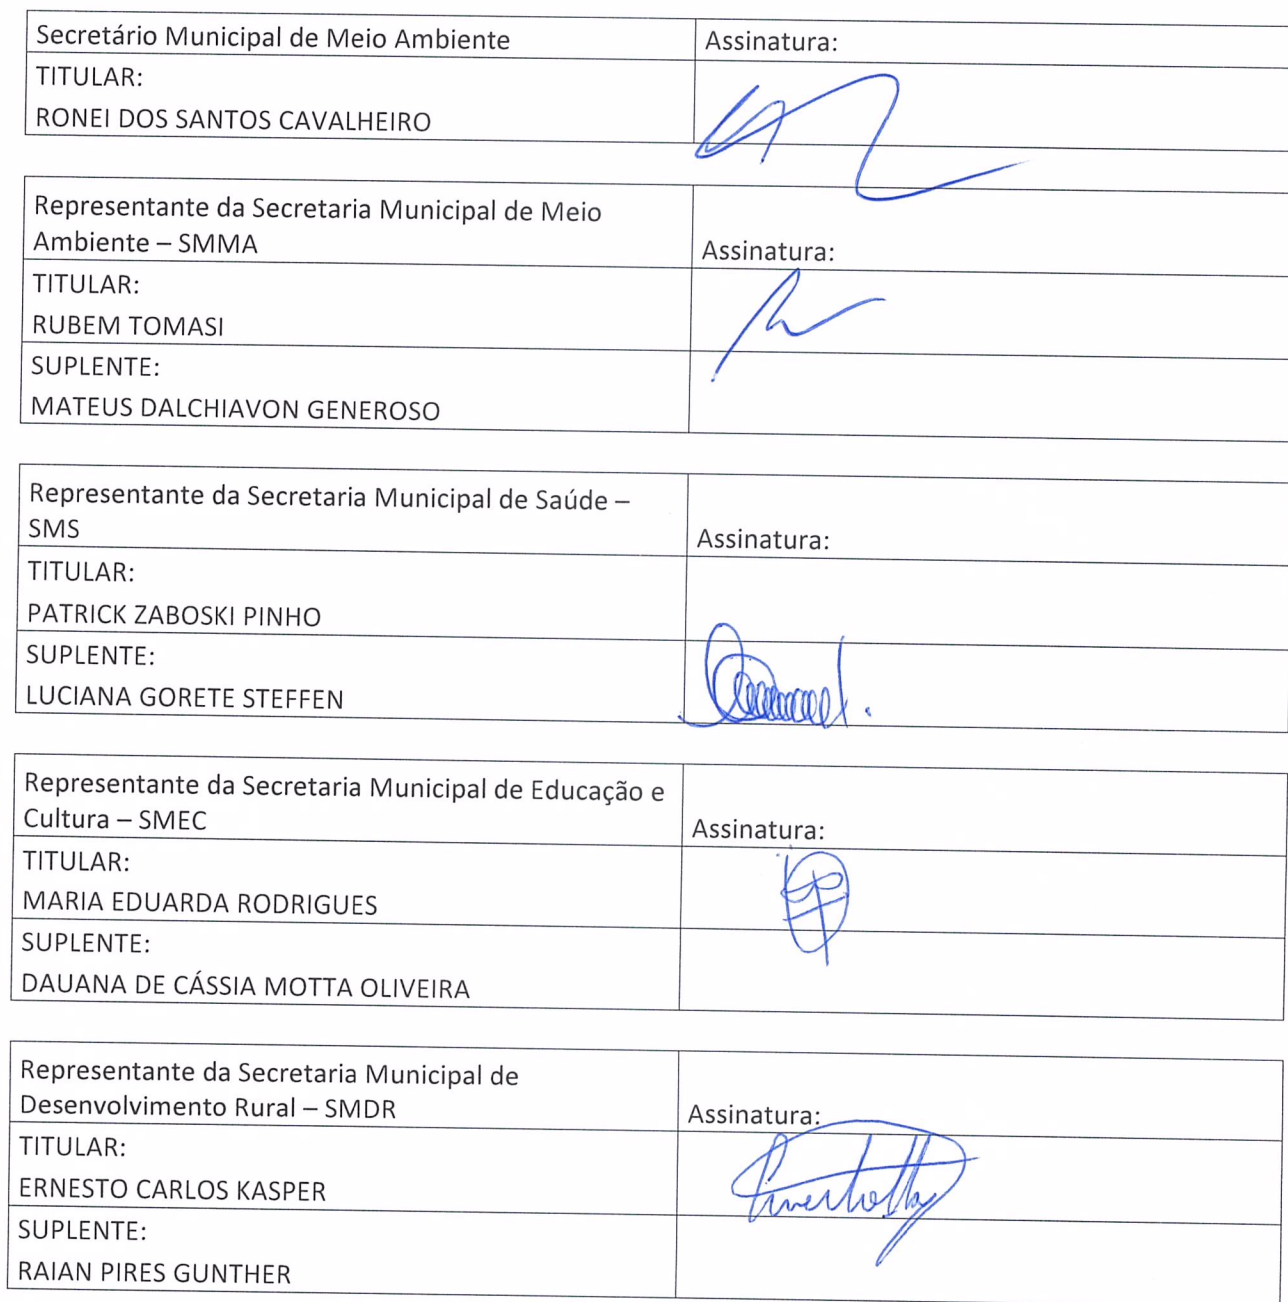 Secretário Municipal de Meio Ambiente
Assinatura:
TITULAR:
RONEI DOS SANTOS CAVALHEIRO
Representante da Secretaria Municipal de Meio
Ambiente – SMMA
Assinatura:
TITULAR:
RUBEM TOMASI
SUPLENTE:
MATEUS DALCHIAVON GENEROSO
Representante da Secretaria Municipal de Saúde –
SMS
Assinatura:
TITULAR:
PATRICK ZABOSKI PINHO
SUPLENTE:
LUCIANA GORETE STEFFEN
Representante da Secretaria Municipal de Educação e
Cultura – SMEC
Assinatura:
TITULAR:
MARIA EDUARDA RODRIGUES
SUPLENTE:
DAUANA DE CÁSSIA MOTTA OLIVEIRA
Representante da Secretaria Municipal de
Desenvolvimento Rural – SMDR
Assinatura:
TITULAR:
ERNESTO CARLOS KASPER
SUPLENTE:
RAIAN PIRES GUNTHER